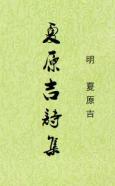 明 夏原吉
夏原吉詩集